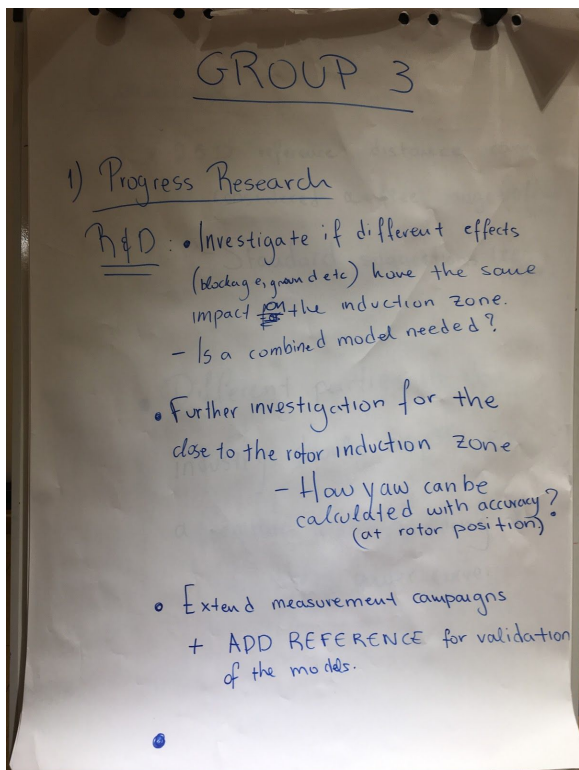 GROUP 3
1) Progress Research
R&D : • Investigate if different effects
(blockage, ground etc) have the same
impact on the induction zone.
- Is a combined model needed?
• Further investigation for the
close to the rotor induction zone
- How yaw can be
calculated with accuracy?
(at rotor position)
• Extend measurement campaigns
+ ADD REFERENCE for validation
of the models.
•